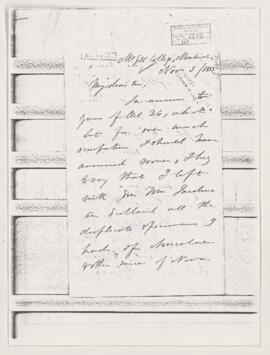 McGill College, Montreal,
Nov 3 / 1883
My dear Sir,
In answer to
yours of Oct 24, which
but for over much
occupation I should have
answered sooner, I beg
to say that I left
with you Mr.
in Scotland all the
duplicate specimens I
had, of
& other mice of Nova